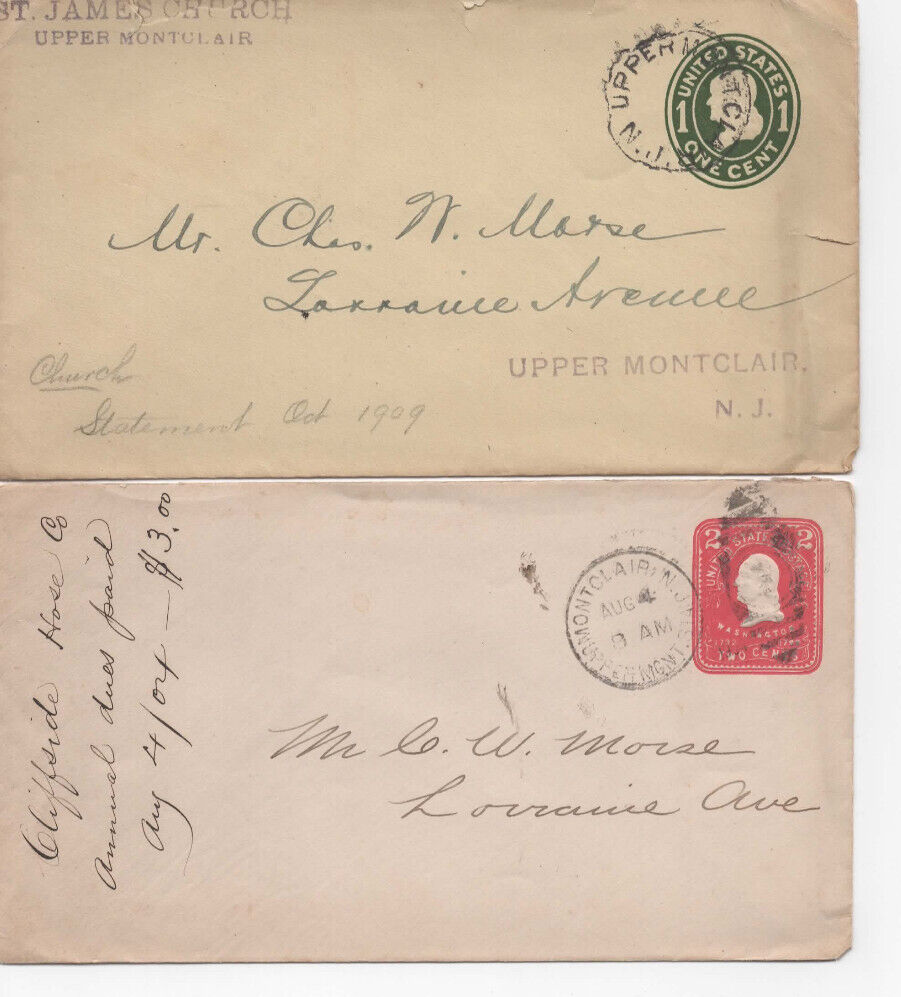 ST. JAMES CHURCH
UPPER MONTCLAIR
UPPER MONTCLA
N.J.
UNITED STATES
1 1
ONE CENT
Mr. Chas. W. Morse
Lorraine Avenue
UPPER MONTCLAIR,
N. J.
Church
Statement Oct 1909
Cliffside Hose Co
Annual dues paid
Aug 4/04 — $3.00
MONTCLAIR, N.J.
AUG 4
8 AM
UPPER MONT.
2 2
UNITED STATES
WASHINGTON
TWO CENTS
Mr C. W. Morse
Lorraine Ave